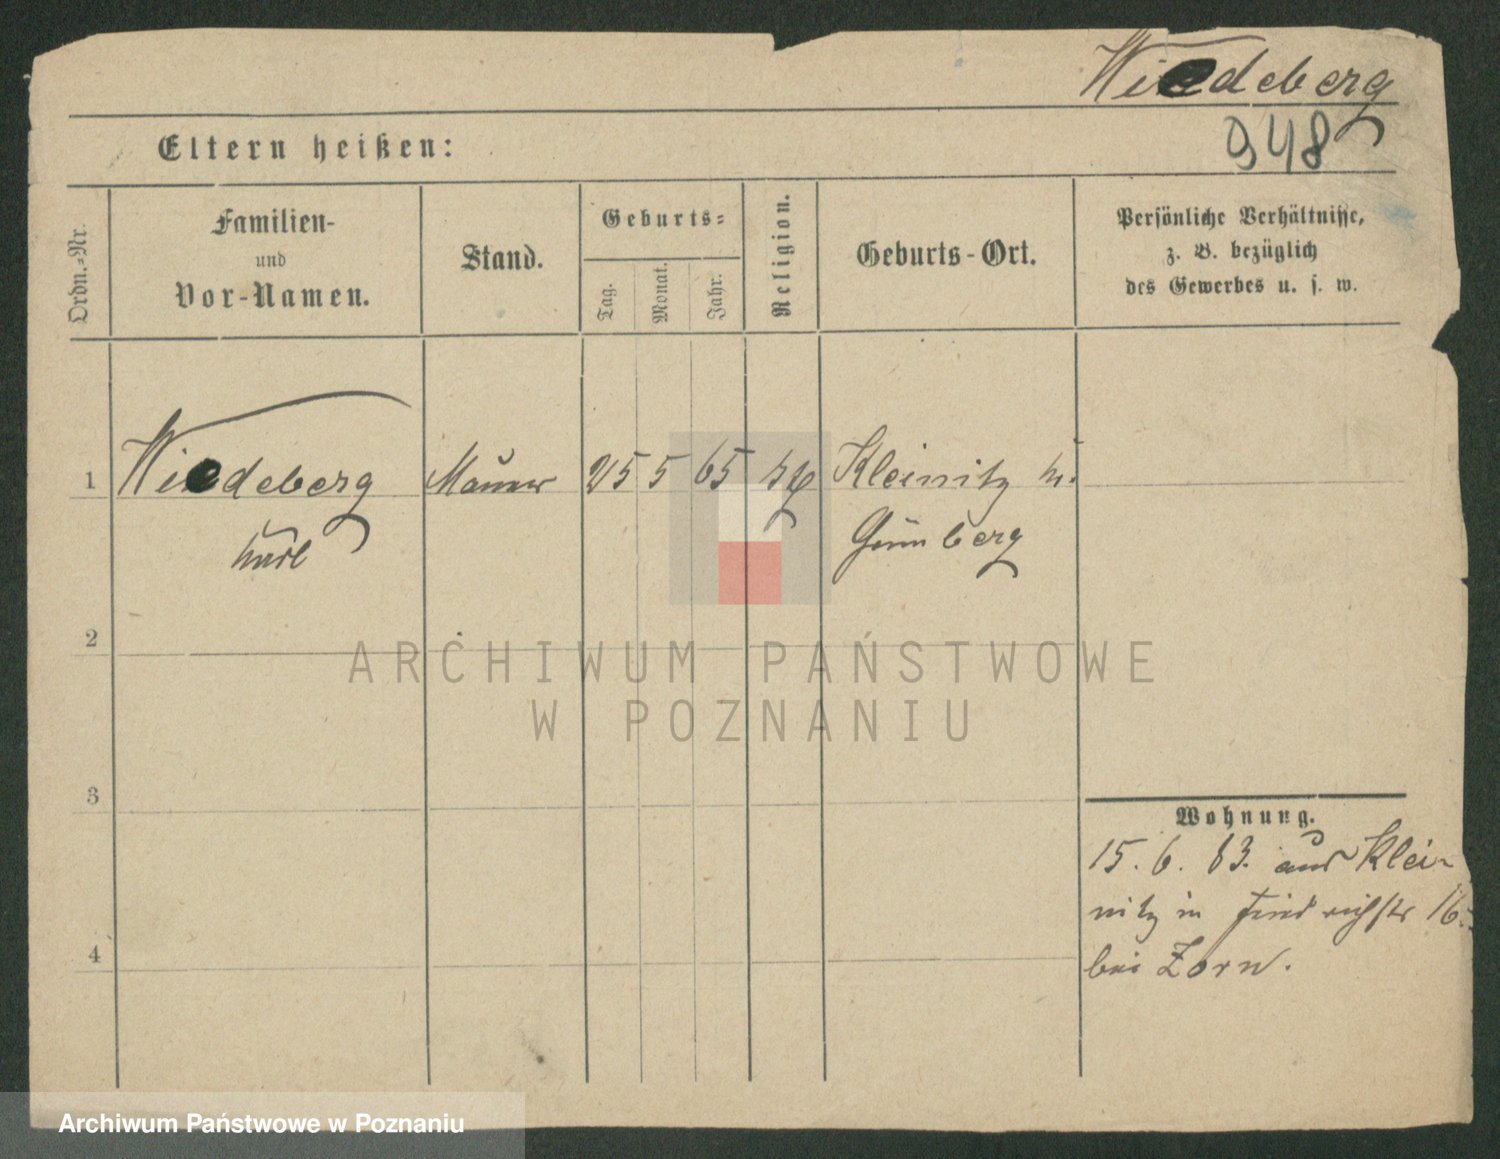 Wiedeberg
948
Eltern heißen:
Ordn.-Nr.
Familien-
und
Vor-Namen.
Stand.
Geburts-
Tag.
Monat.
Jahr.
Religion.
Geburts-Ort.
Persönliche Verhältnisse,
z. B. bezüglich
des Gewerbes u. s. w.
1
Wiedeberg
Karl
Maurer
25
5
65
Kleinitz
Grünberg
2
3
4
Wohnung.
15. 6. 83. aus Klei-
nitz in Friedrichstr 16.
bei Zorn.
ARCHIWUM PAŃSTWOWE
W POZNANIU
Archiwum Państwowe w Poznaniu